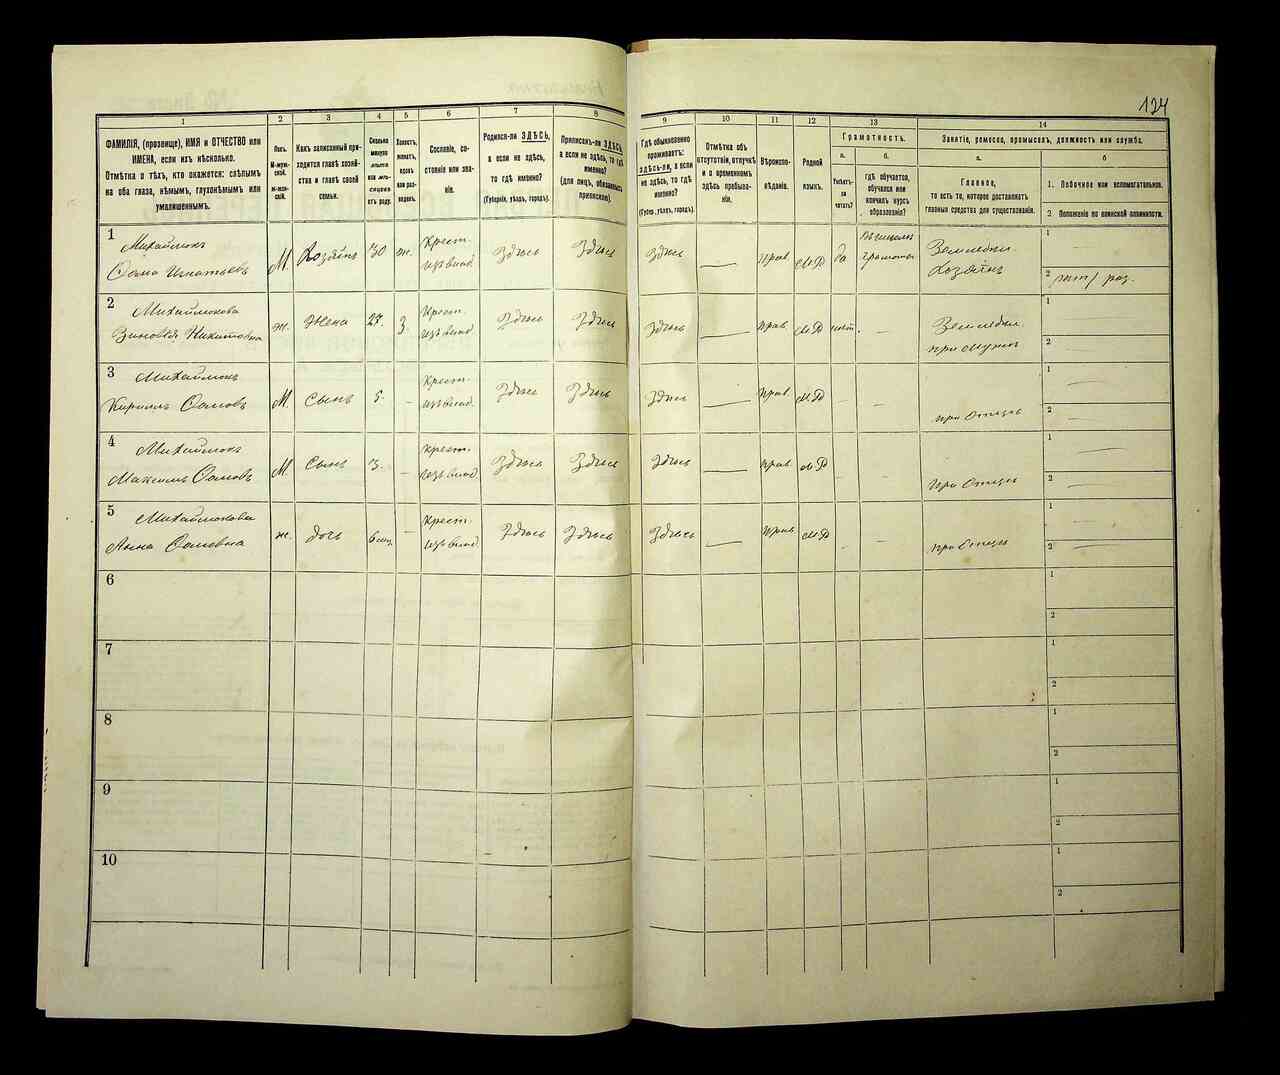 124
1
ФАМИЛІЯ, (прозвище), ИМЯ и ОТЧЕСТВО или
ИМЕНА, если ихъ нѣсколько.
Отмѣтка о тѣхъ, кто окажется: слѣпымъ
на оба глаза, нѣмымъ, глухонѣмымъ или
умалишеннымъ.
2
Полъ.
М-муж-
ской.
ж-жен-
скій.
3
Какъ записанный при-
ходится главѣ хозяй-
ства и главѣ своей
семьи.
4
Сколько
минуло
лѣтъ
или мѣ-
сяцевъ
отъ роду.
5
Холостъ,
женатъ,
вдовъ
или раз-
веденъ.
6
Сословіе, со-
стояніе или зва-
ніе.
7
Родился-ли ЗДѢСЬ,
а если не здѣсь,
то гдѣ именно?
(Губернія, уѣздъ, городъ).
8
Приписанъ-ли ЗДѢСЬ,
а если не здѣсь, то гдѣ
именно?
(для лицъ, обязанныхъ
припискою).
9
Гдѣ обыкновенно
проживаетъ:
ЗДѢСЬ-ЛИ, а если
не здѣсь, то гдѣ
именно?
(Губер., уѣздъ, городъ).
10
Отмѣтка объ
отсутствіи, отлучкѣ
и о временномъ
здѣсь пребыва-
ніи.
11
Вѣроиспо-
вѣданіе.
12
Родной
языкъ.
13
Грамотность.
а.
Умѣетъ-
ли
читать?
б.
гдѣ обучается,
обучался или
кончилъ курсъ
образованія?
14
Занятіе, ремесло, промыселъ, должность или служба.
а.
Главное,
то есть то, которое доставляетъ
главныя средства для существованія.
б
1. Побочное или вспомогательное.
2 Положеніе по воинской повинности.
1
Михайлюкъ
Сома Игнатьевъ
М
Хозяинъ
30
ж.
Крест.
изъ влад.
Здѣсь
Здѣсь
Здѣсь
——
Прав.
МР
да
грамоты
Земледѣл.
Хозяинъ
1
2
2
Михайлюкова
Зиновія Никитовна
ж.
Жена
25.
з.
Крест.
изъ влад.
Здѣсь
Здѣсь
Здѣсь
——
Прав.
МР
нѣт.
–
Земледѣл.
при мужѣ
1
2
3
Михайлюкъ
Кириллъ Сомовъ
М.
Сынъ
5.
–
Крест.
изъ влад.
Здѣсь
Здѣсь
Здѣсь
——
Прав.
МР
–
–
при Отцѣ
1
2
4
Михайлюкъ
Максимъ Сомовъ
М.
Сынъ
3.
–
Крест.
изъ влад.
Здѣсь
Здѣсь
Здѣсь
——
Прав.
МР
–
при Отцѣ
1
2
5
Михайлюкова
Анна Сомовна
ж.
дочь
6 мц.
–
Крест.
изъ влад.
Здѣсь
Здѣсь
Здѣсь
——
Прав.
МР
–
при Отцѣ
1
2
6
1
2
7
1
2
8
1
2
9
1
2
10
1
2